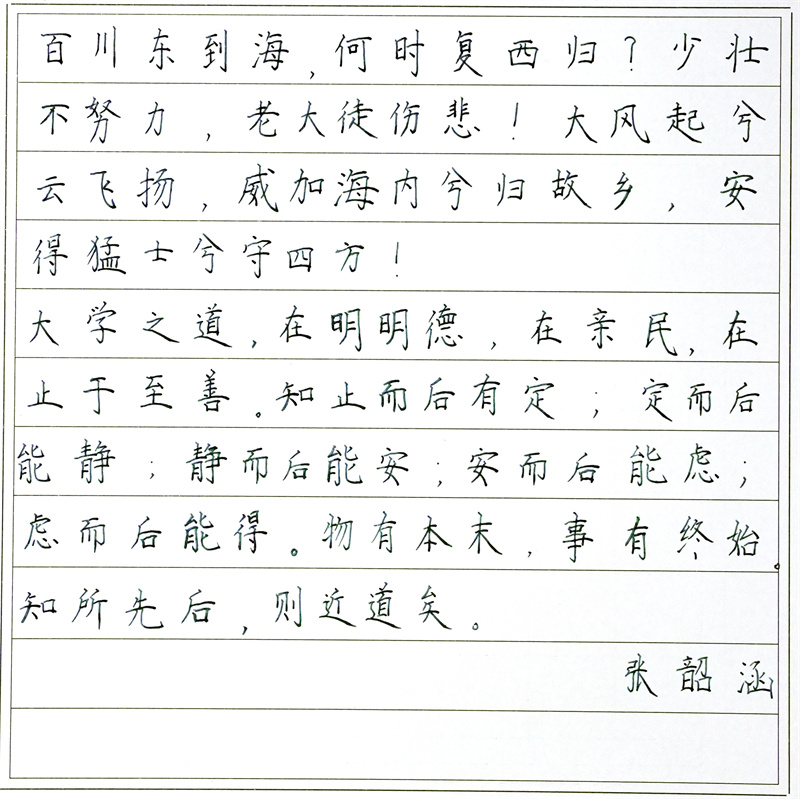 百川东到海,何时复西归?少壮
不努力,老大徒伤悲!大风起兮
云飞扬,威加海内兮归故乡,安
得猛士兮守四方!
大学之道,在明明德,在亲民,在
止于至善。知止而后有定;定而后
能静;静而后能安;安而后能虑;
虑而后能得。物有本末,事有终始。
知所先后,则近道矣。
张韶涵